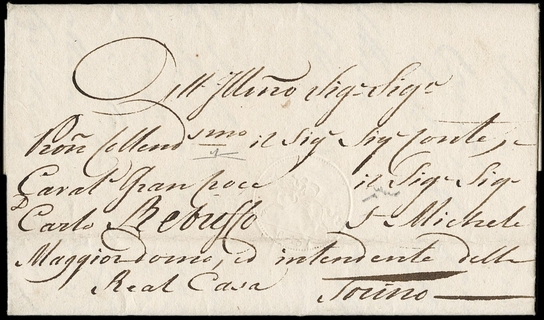 All' Illmo Sigr Sigr
Pron Collendsmo il Sigr Sigr Conte, e
Cavalr Gran Croce il Sigr Sigr
D Carlo Rebuffo S Michele
Maggiordomo, ed intendente della
Real Casa Torino